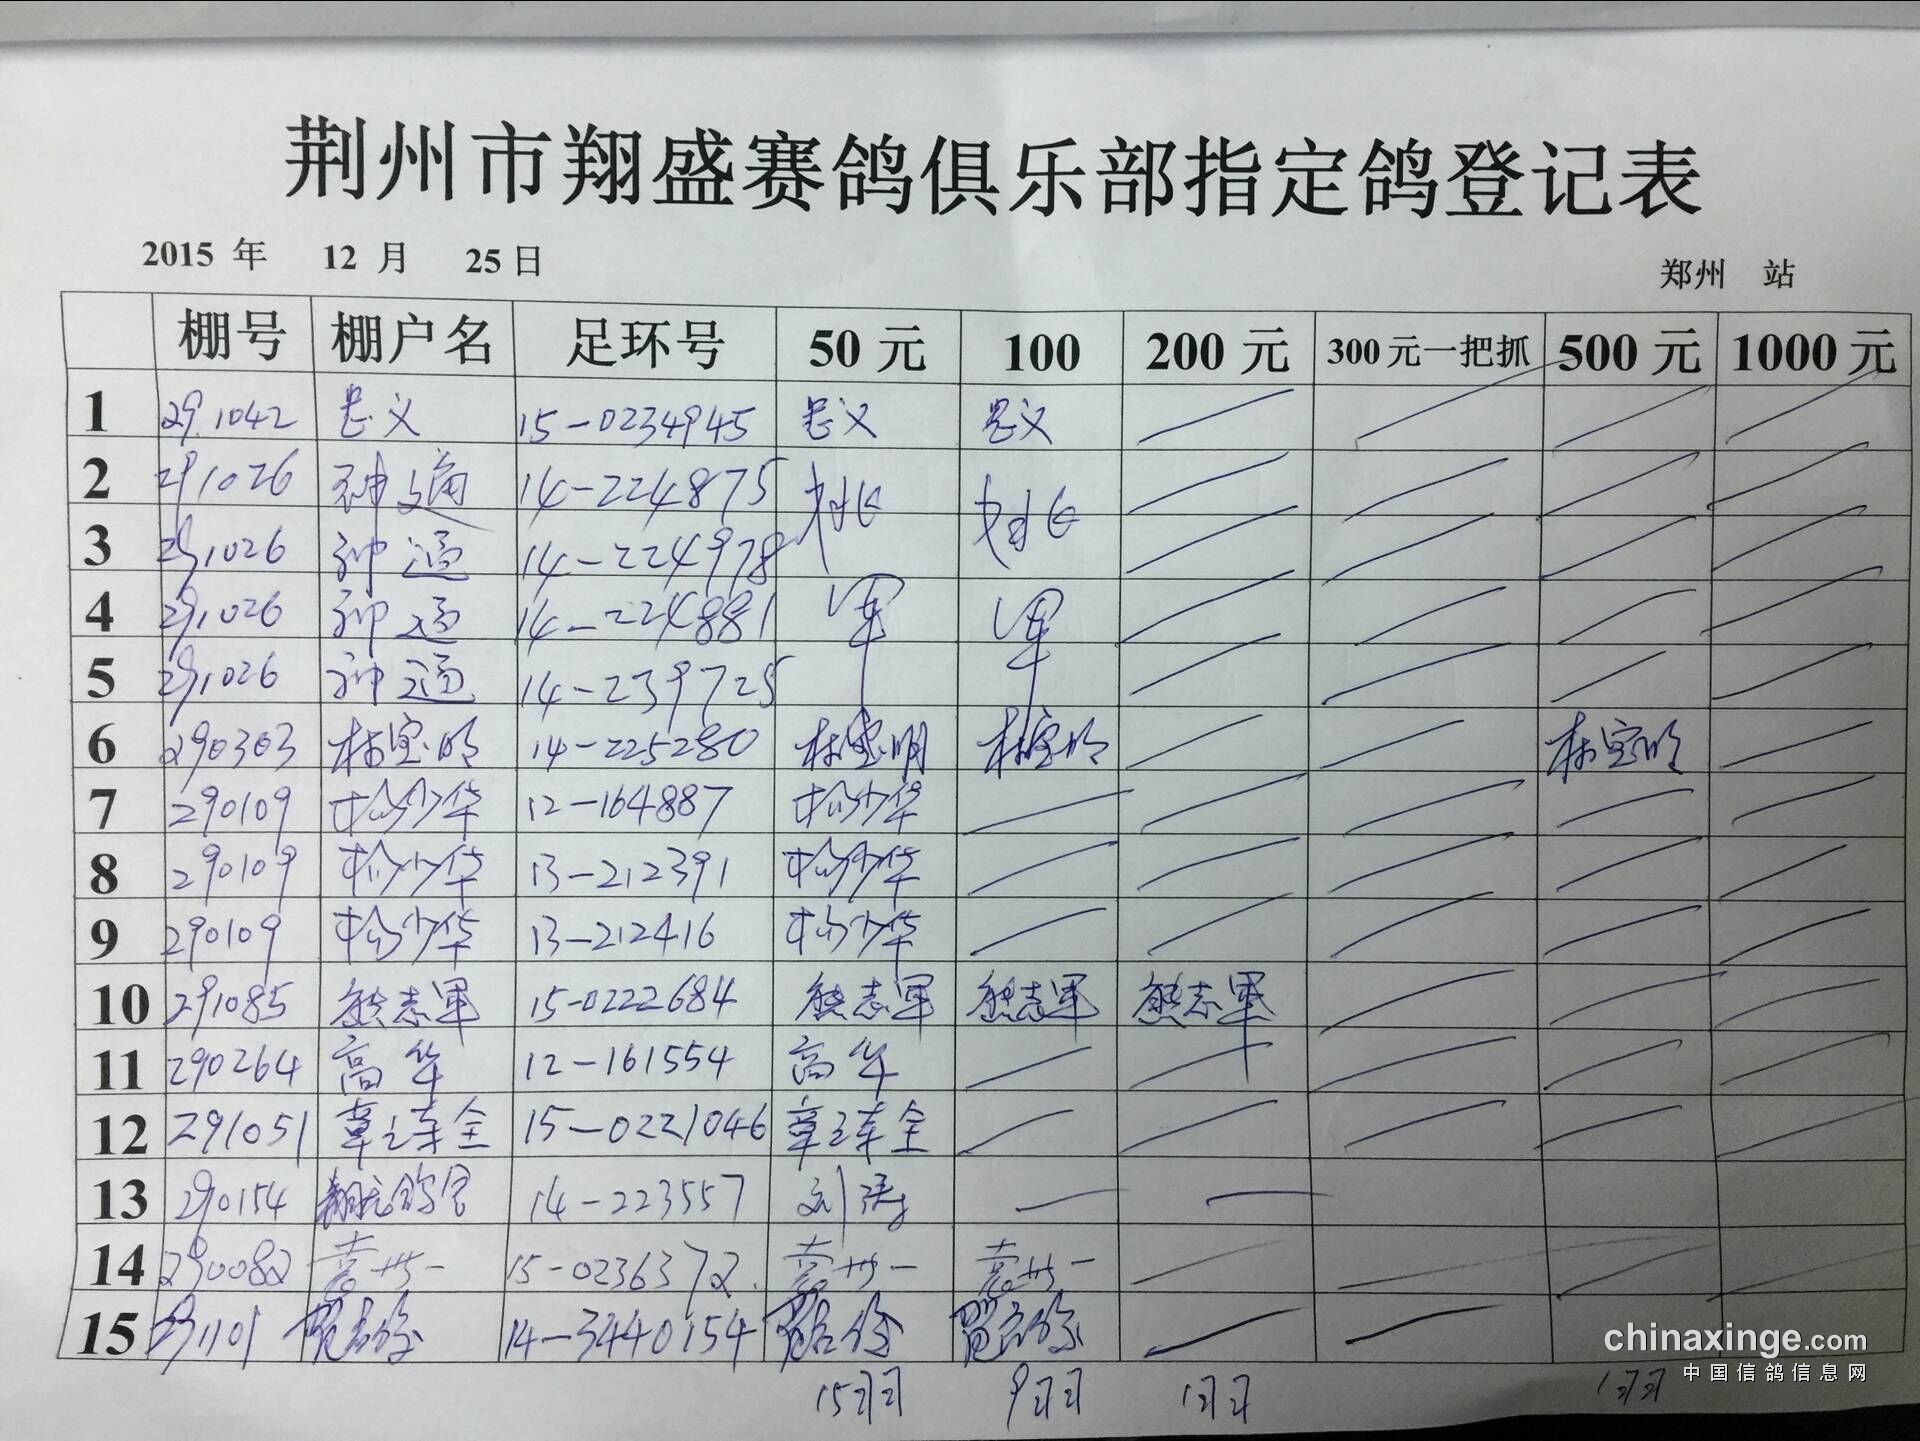 荆州市翔盛赛鸽俱乐部指定鸽登记表
2015 年 12 月 25 日 郑州 站
棚号 棚户名 足环号 50 元 100 200 元 300 元一把抓 500 元 1000 元
1 291042 义 15-0234945 义 义
2 291026 神通 14-224875
3 291026 神通 14-224978
4 291026 神通 14-224881 军 军
5 291026 神通 14-239725
6 290303 林宝明 14-225280 林宝明 林宝明 林宝明
7 290109 松少华 12-164887 松少华
8 290109 松少华 13-212391 松少华
9 290109 松少华 13-212416 松少华
10 291085 熊志军 15-0222684 熊志军 熊志军 熊志军
11 290264 高华 12-161554 高华
12 291051 章连全 15-0221046 章连全
13 290154 翱龙鸽舍 14-223557 刘涛
14 290082 袁世一 15-0236372 袁世一 袁世一
15 291101 14-3440154
15羽 9羽 1羽 1羽
chinaxinge.com
中国信鸽信息网